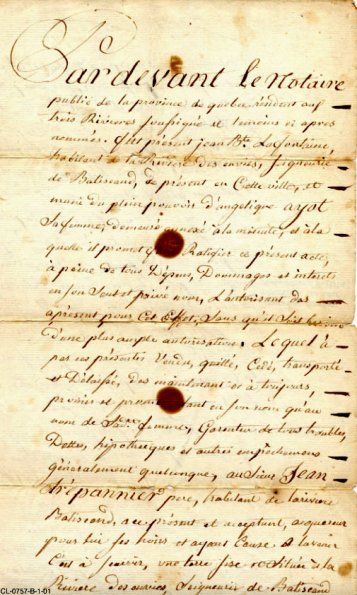 Pardevant Le Notaire
public de la province de quebec résident aux
trois Rivieres soussigné et temoins ci après
nommés. fut présent jean Bte Lafontaine,
habitant de la Riviere des envies, seigneurie
de Batiscand, de présent en Cette ville, et
muni du plein pouvoir d'angelique ayot
sa femme, demeuré annexé à la minute, et à la
quelle il promet Ratifier ce présent acte,
à peine de tous dépens, Dommages et interets
en son propre et privé nom, L'autorisant dès
aprésent pour Cet Effet, sans qu'il soit besoin
d'une plus ample autorisation. Lequel à
par ces présentes Vendu, quitté, Cedé, transporté
et Délaissé, dès maintenant et à toujours,
promis et promet tant en son nom qu'au
nom de Sa femme, Garantir de tous troubles,
Dettes, hipotheques et autres empêchemens
généralement quelconque, au Sieur Jean
trépannier pere, habitant de la riviere
Batiscand, a ce présent et acceptant, acquereur
pour lui ses hoirs et ayant Cause à lavenir
C'est à Scavoir, une terre Située
Riviere des envies, Seigneurie de Batiscand
CL-0757-B-1-01